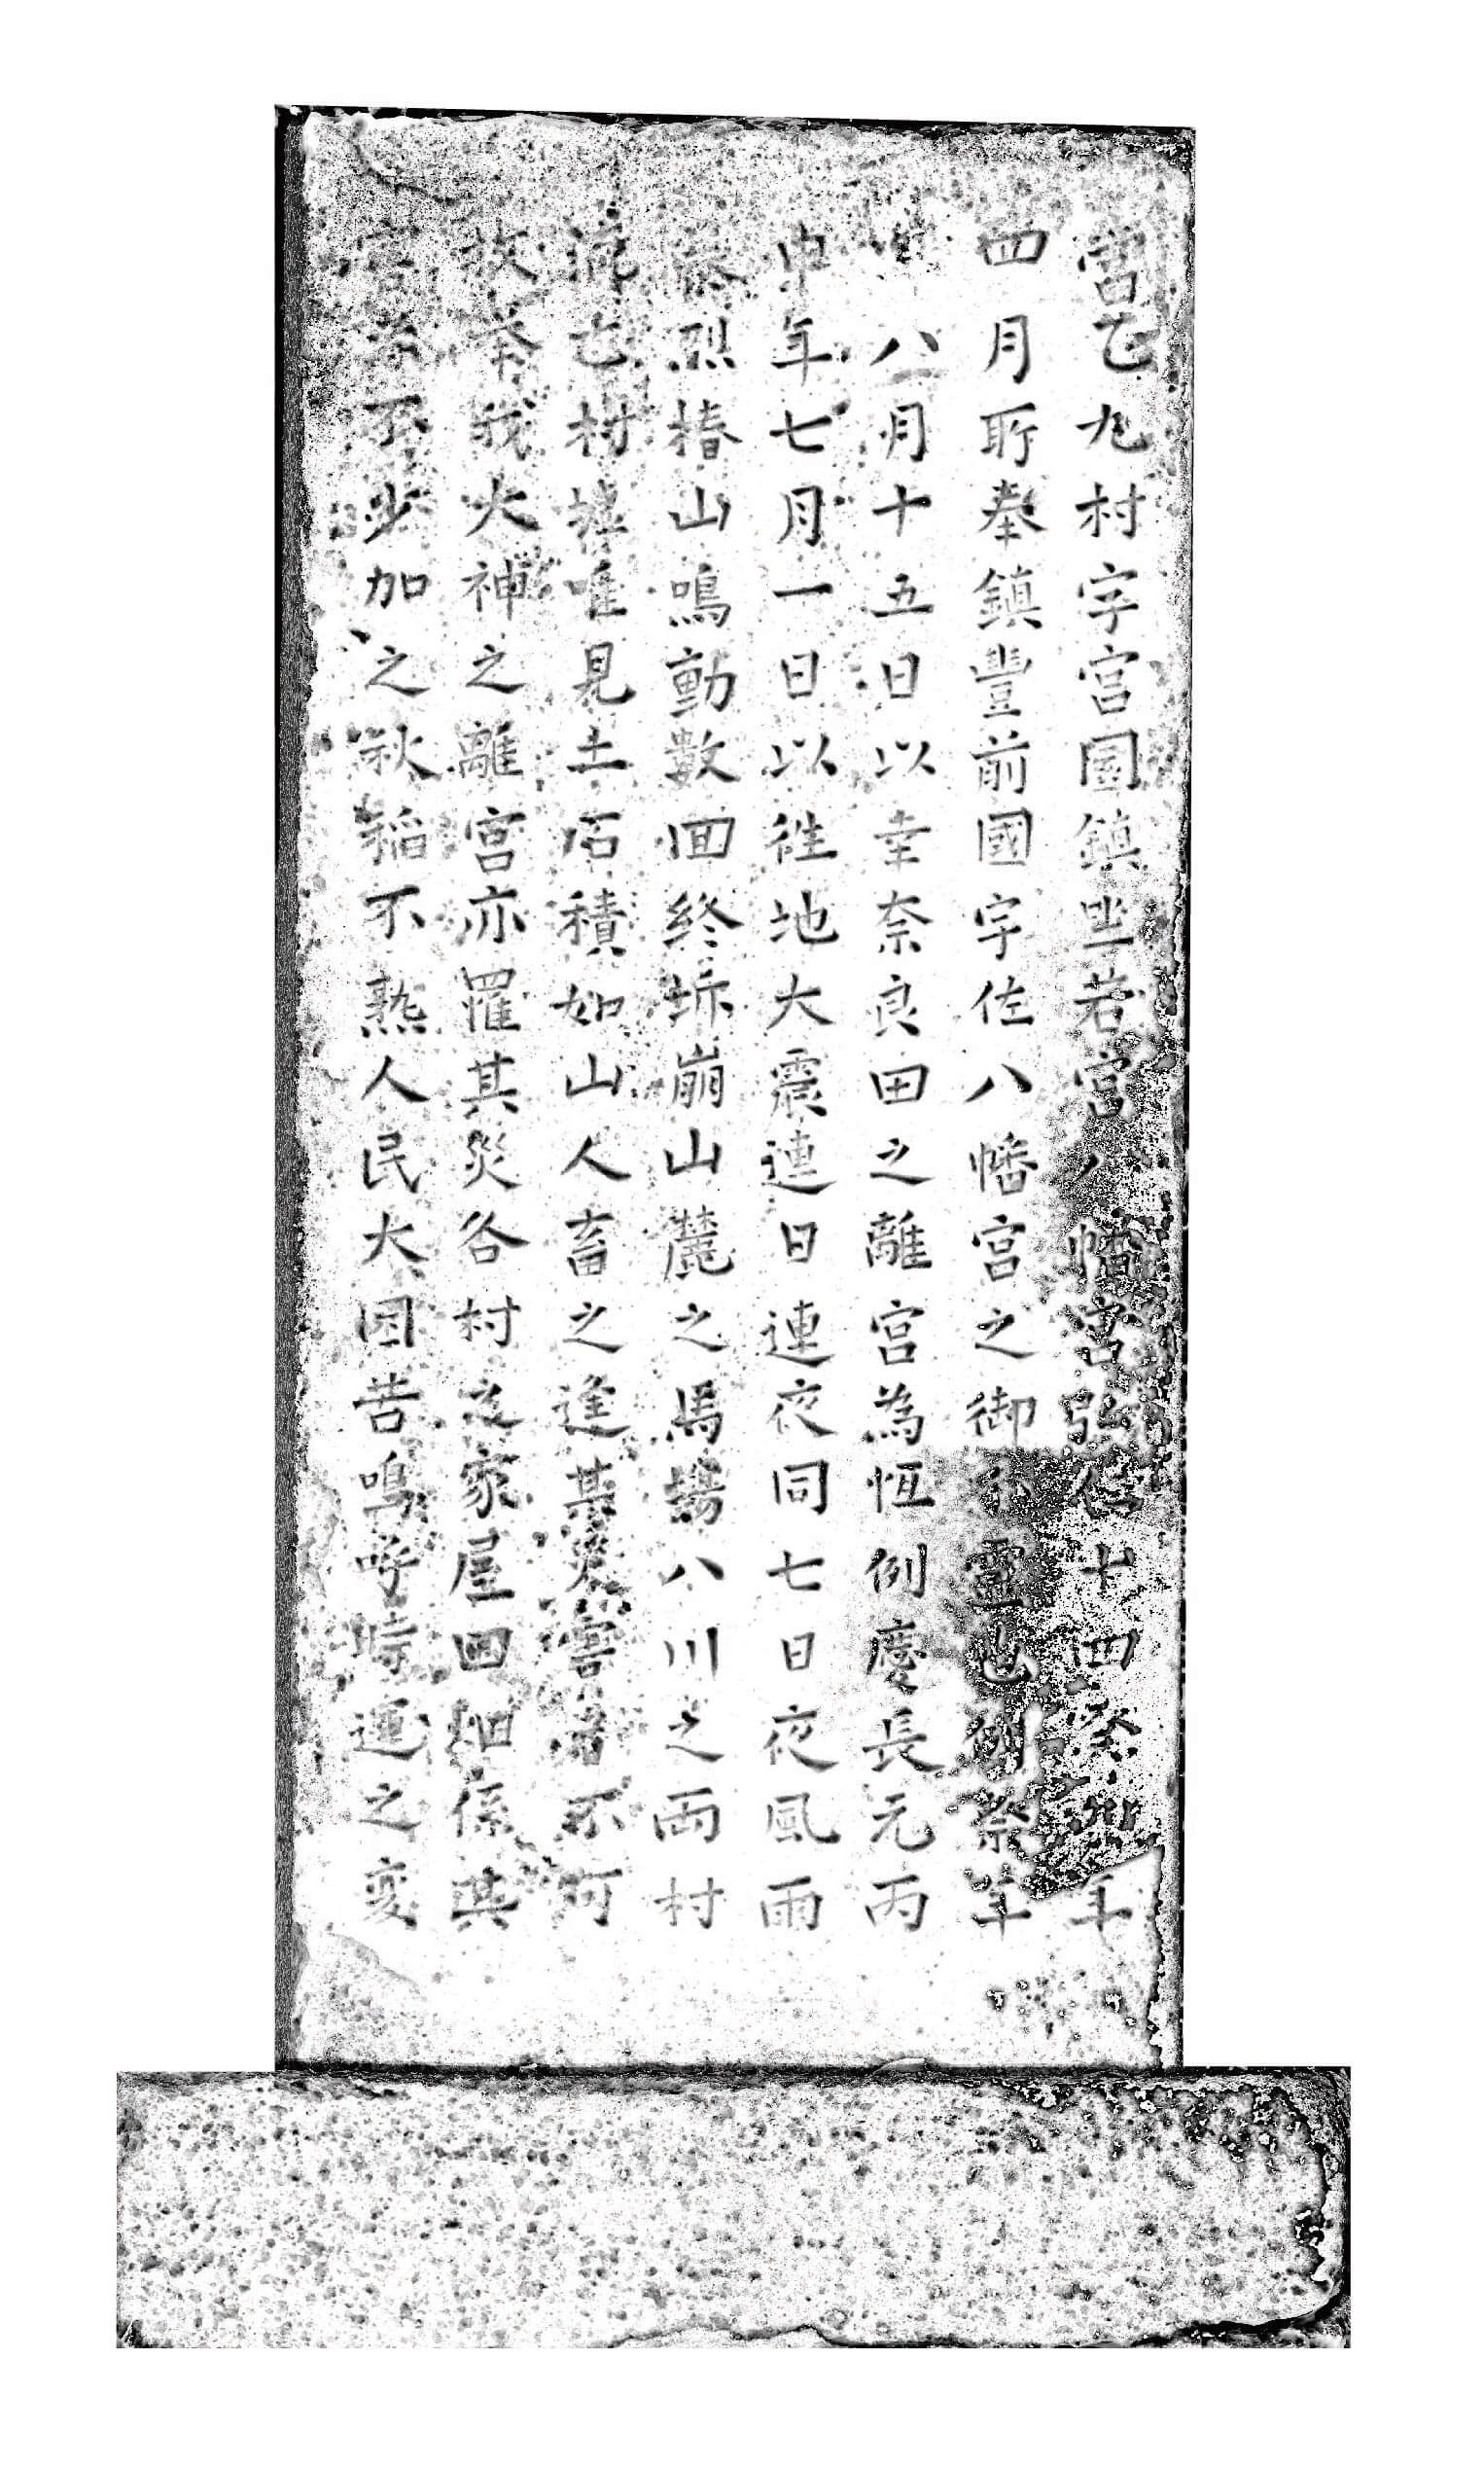 當乙九村字宮園鎮坐若宮八幡宮弘仁十四癸卯年
四月所奉鎮豐前國宇佐八幡宮之御分靈也例祭年
八月十五日以幸奈良田之離宮為恆例慶長元丙
申年七月一日以徃地大震連日連夜同七日夜風雨
烈椿山鳴動數囬終坼崩山麓之馬塲八川之兩村
流亡村墟唯見土石積如山人畜之逢其災害者不可
我大神之離宮亦罹其災各村之家屋田畑係其
不少加之秋稻不熟人民大困苦鳴呼時運之変